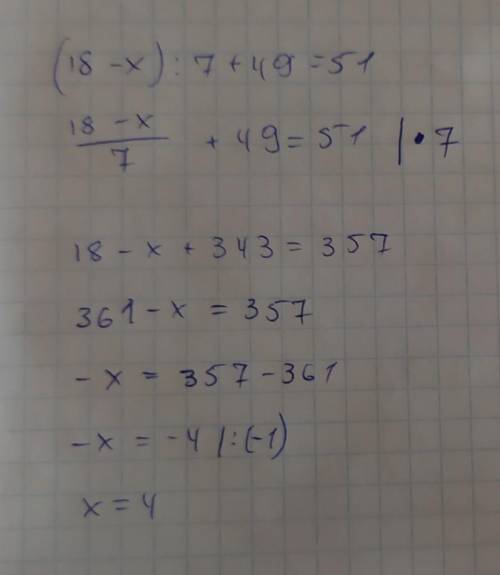 (18 - x) : 7 + 49 = 51
18 - x / 7 + 49 = 51 | • 7
18 - x + 343 = 357
361 - x = 357
- x = 357 - 361
- x = -4 | : (-1)
x = 4